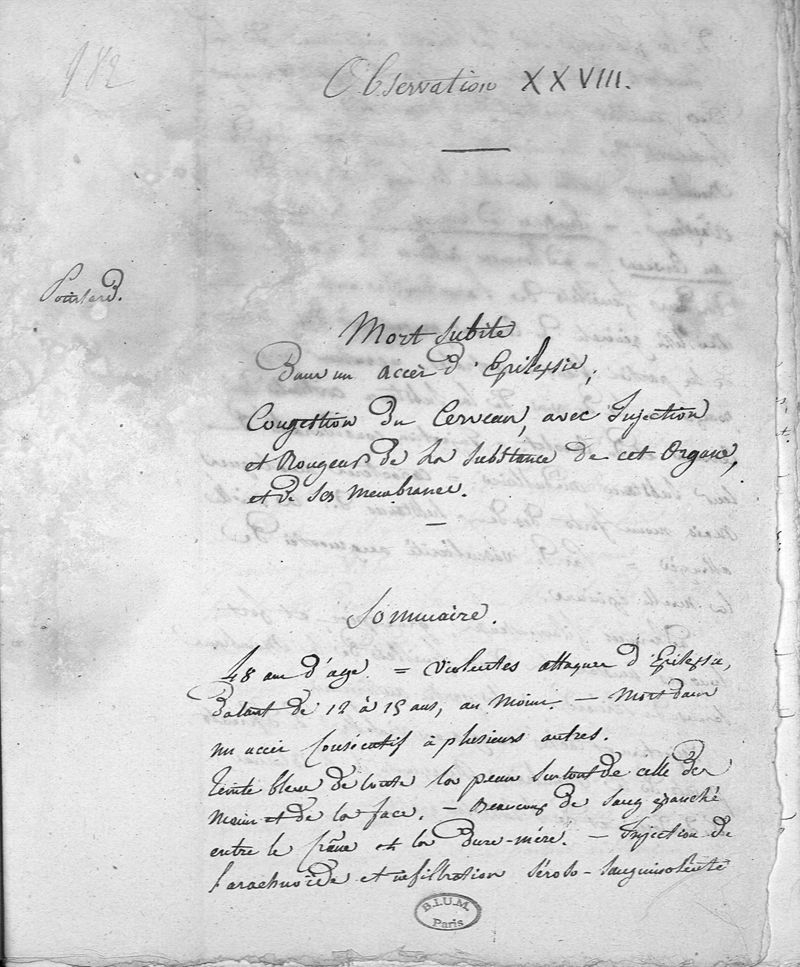 982
Observation XXVIII.
Poirsard.
Mort subite
Dans un accès d'Epilepsie;
Congestion du Cerveau, avec Injection
et Rougeur de la substance de cet Organe,
et de ses membranes.
Sommaire.
48 ans d'age. = violentes attaques d'Epilepsie,
Datant de 12 à 15 ans, au moins. — Mort dans
un accès Consécutif à plusieurs autres.
Teinte bleue de toute la peau surtout de celle des
mains et de la face. — Beaucoup de sang épanché
entre le Crâne et la Dure-mère. — Injection de
l'arachnoïde et infiltration séroso-sanguinolente
B.I.U.M.
Paris